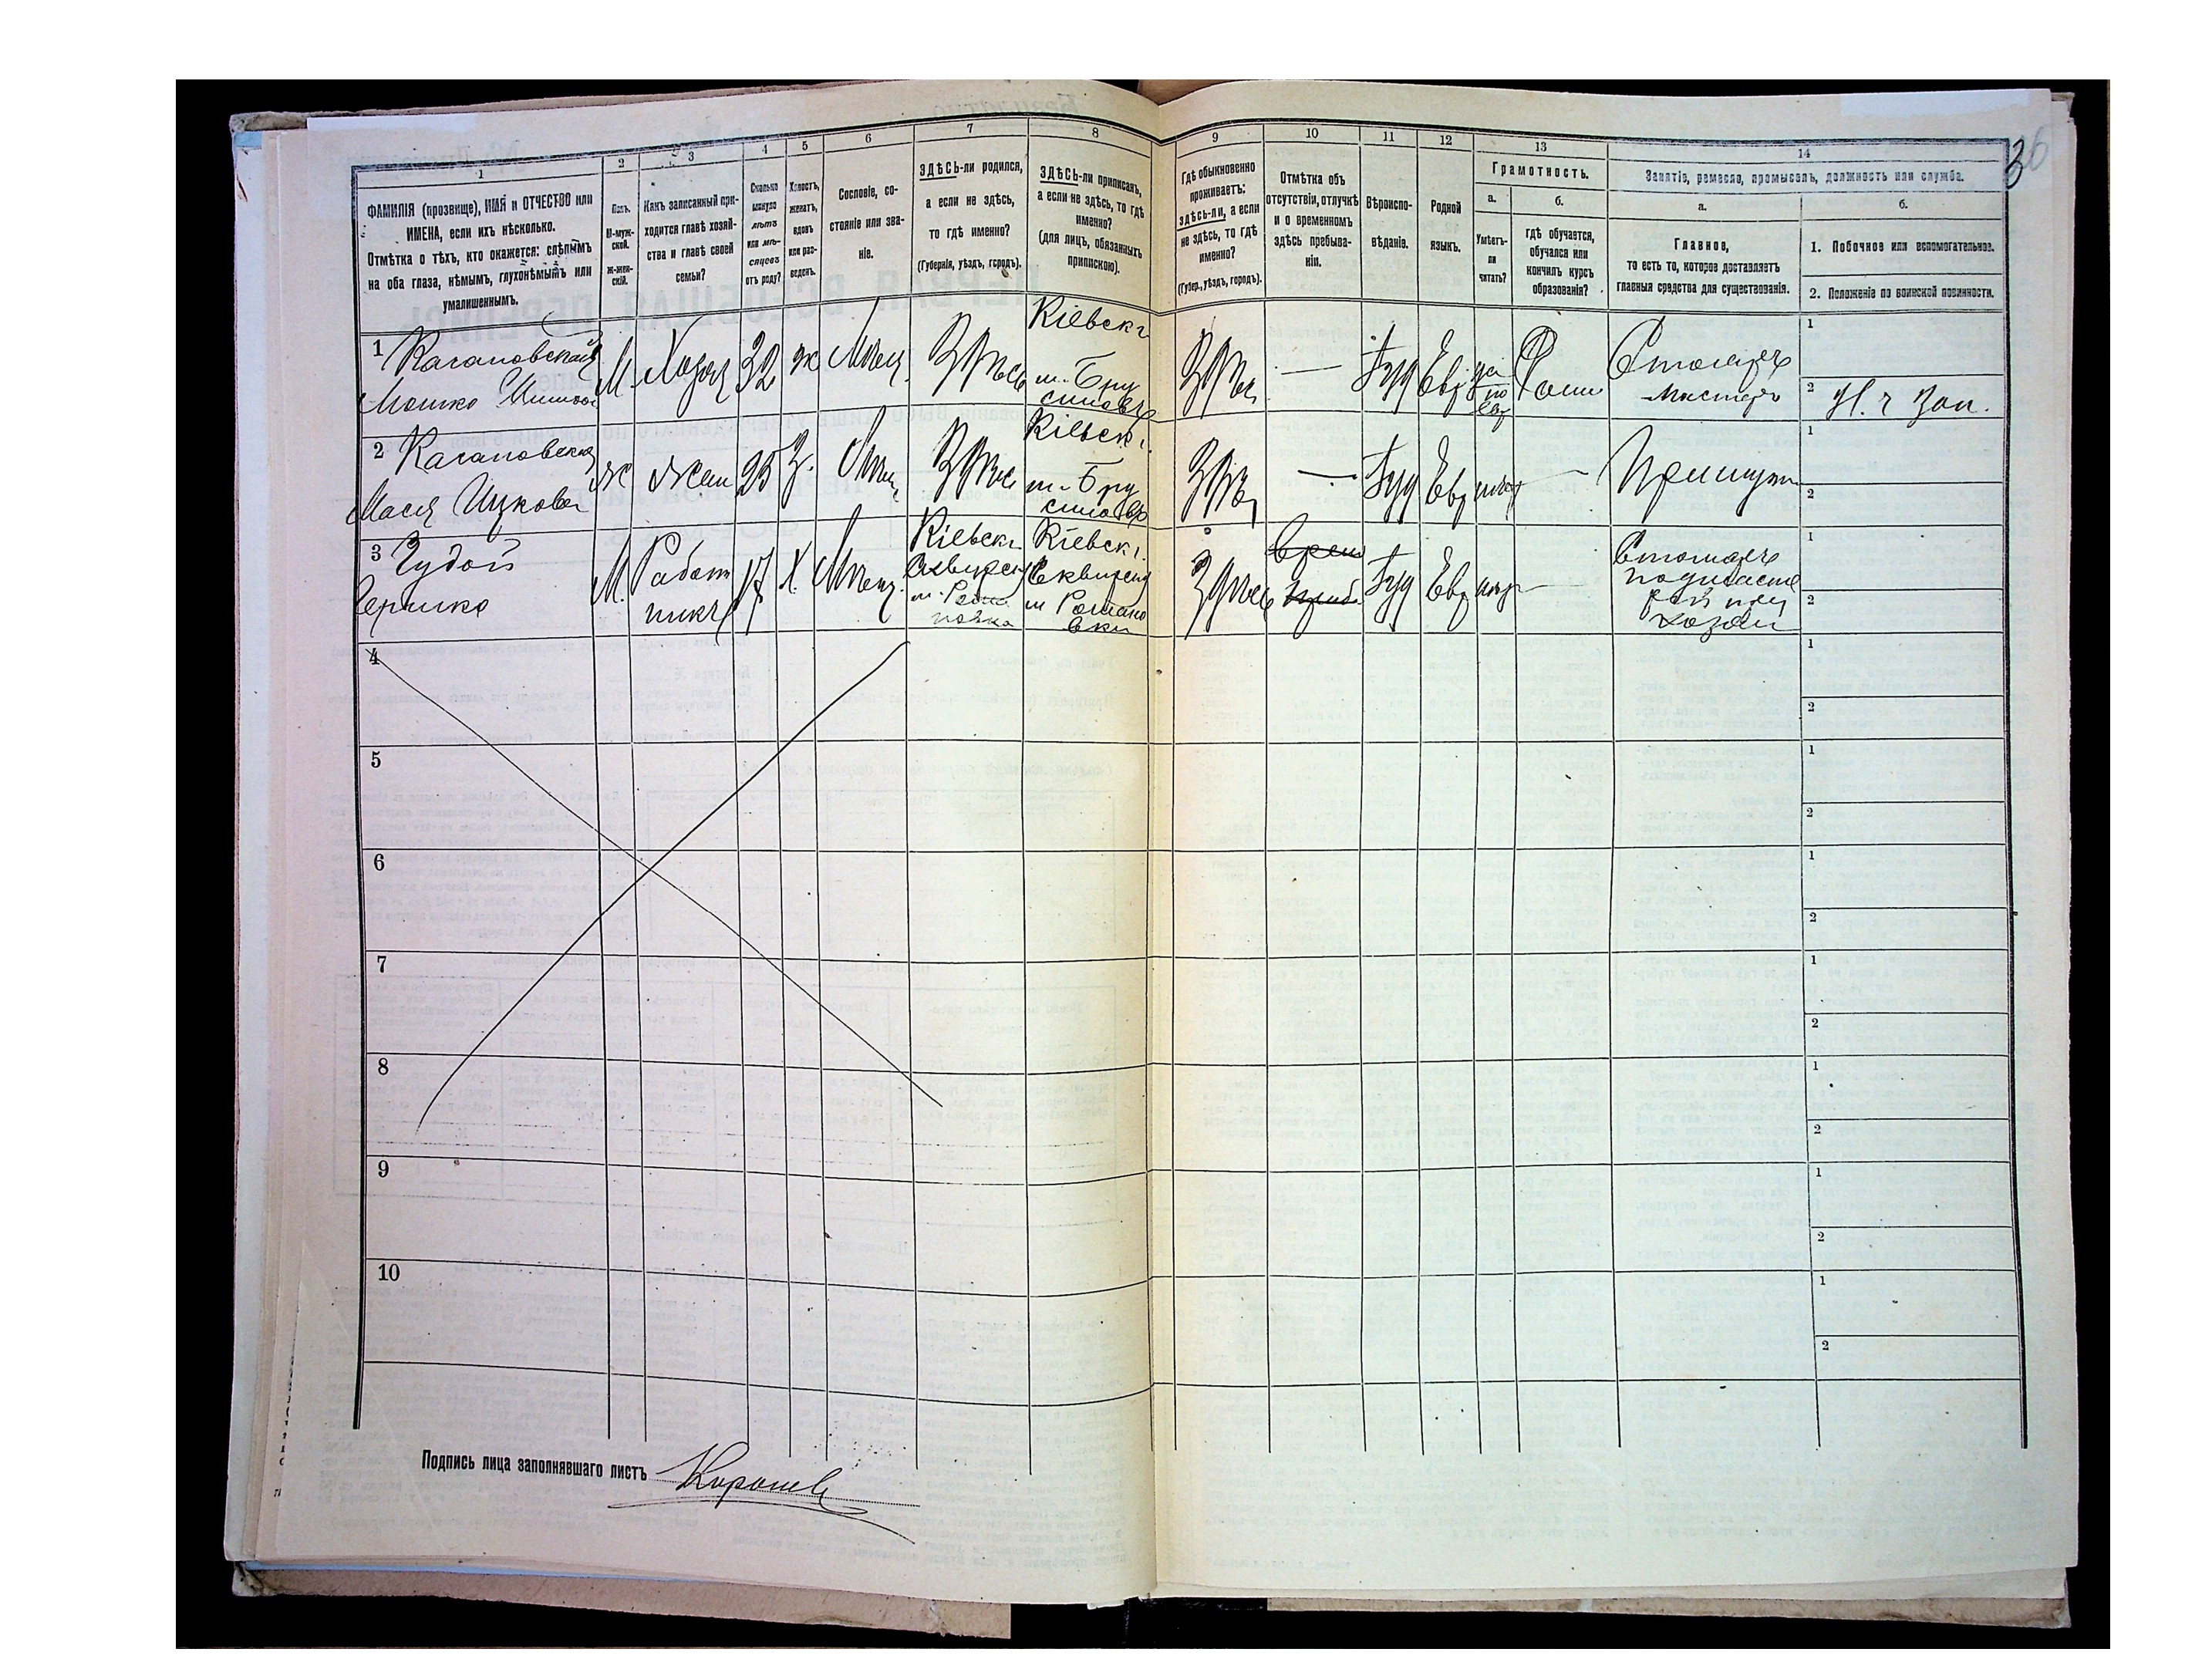 36
1
2
3
4
5
6
7
8
9
10
11
12
13
14
ФАМИЛІЯ (прозвище), ИМЯ и ОТЧЕСТВО или
ИМЕНА, если ихъ нѣсколько.
Отмѣтка о тѣхъ, кто окажется: слѣпымъ
на оба глаза, нѣмымъ, глухонѣмымъ или
умалишеннымъ.
Полъ.
М-муж-
ской.
Ж-жен-
скій.
Какъ записанный при-
ходится главѣ хозяй-
ства и главѣ своей
семьи?
Сколько
минуло
лѣтъ
или мѣ-
сяцевъ
отъ роду?
Холостъ,
женатъ,
вдовъ
или раз-
веденъ.
Сословіе, со-
стояніе или зва-
ніе.
ЗДѢСЬ-ли родился,
а если не здѣсь,
то гдѣ именно?
(Губернія, уѣздъ, городъ).
ЗДѢСЬ-ли приписанъ,
а если не здѣсь, то гдѣ
именно?
(для лицъ, обязанныхъ
припискою).
Гдѣ обыкновенно
проживаетъ:
здѣсь-ли, а если
не здѣсь, то гдѣ
именно?
(Губер., уѣздъ, городъ).
Отмѣтка объ
отсутствіи, отлучкѣ
и о временномъ
здѣсь пребыва-
ніи.
Вѣроиспо-
вѣданіе.
Родной
языкъ.
Грамотность.
а.
Умѣетъ-
ли
читать?
б.
гдѣ обучается,
обучался или
кончилъ курсъ
образованія?
Занятіе, ремесло, промыселъ, должность или служба.
а.
Главное,
то есть то, которое доставляетъ
главныя средства для существованія.
б.
1. Побочное или вспомогательное.
2. Положеніе по воинской повинности.
1 Кагановскій
Мошко
М.
Хозяи
32
ж
Мѣщ.
Здѣсь
Кіевск г.
м. Бру
силовъ
Здѣсь
—
Іуд
Евр
да
по
евр
Дома
Столяръ
мастеръ
1
2 Н. ч Зап.
2 Кагановская
Мася Ицкова
Ж
Жена
25
З.
Мѣщ
Здѣсь
Кіевск г.
м. Бру
силовъ
Здѣсь
—
Іуд
Евр
нѣт
—
При мужѣ
1
2
3 Чудой
Гершко
М.
Работ
никъ
17
Х.
Мѣщ.
Кіевск г.
Сквирск
м. Рома
новка
Кіевск г.
Сквирск
м Романо
вки
Здѣсь
врем
преб.
Іуд
Евр
нѣт
—
Столяръ
подмасте
рій при
хозяи
1
2
4
1
2
5
1
2
6
1
2
7
1
2
8
1
2
9
1
2
10
1
2
Подпись лица заполнявшаго листъ